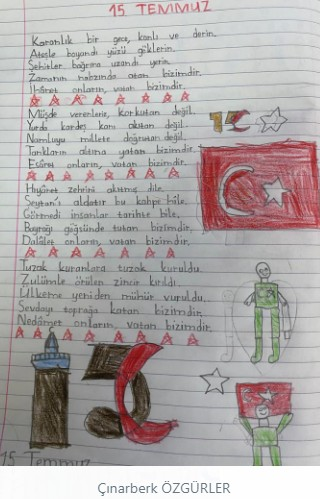 15 TEMMUZ
Karanlık bir gece, kanlı ve derin.
Ateşle boyandı yüzü göklerin.
Şehitler bağrına uzandı yerin.
Zamanın nabzında atan bizimdir.
İhânet onların, vatan bizimdir.
Müjde verenleriz, korkutan değil.
Yurda kardeş kanı akıtan değil.
Namluyu millete doğrutan değil.
Tankların altına yatan bizimdir.
Esâret onların, vatan bizimdir.
15
Hıyânet zehrini akıtmış dile,
Şeytan'ı aldatır bu kahpe hîle.
Görmedi insanlar tarihte bile,
Bayrağı göğsünde tutan bizimdir.
Dalâlet onların, vatan bizimdir.
Tuzak kuranlara tuzak kuruldu.
Zulümle örülen zincir kırıldı.
Ülkeme yeniden mühür vuruldu.
Sevdayı toprağa katan bizimdir.
Nedâmet onların, vatan bizimdir.
15 Temmuz
Çınarberk ÖZGÜRLER